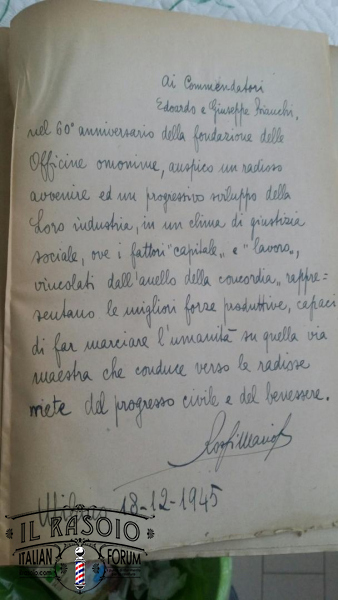 Ai Commendatori
Edoardo e Giuseppe Bianchi,
nel 60° anniversario della fondazione delle
Officine omonime, auspico un radioso
avvenire ed un progressivo sviluppo della
Loro industria, in un clima di giustizia
sociale, ove i fattori "capitale„ e "lavoro„,
vincolati dall'anello della concordia, rappre=
sentano le migliori forze produttive, capaci
di far marciare l'umanità su quella via
maestra che conduce verso le radiose
mete del progresso civile e del benessere.
Milano 18-12-1945
IL RASOIO
ITALIAN FORUM